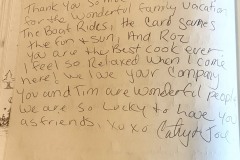 Thank You so much
for the wonderful family vacation
The Boat Rides, The card games
the fun & sun, And Roz
you are the Best cook ever
I feel so Relaxed when I come
here! we love your company
You and Tim are wonderful people
we are so Lucky to have you
as friends. XoXo. Cathy & Joe